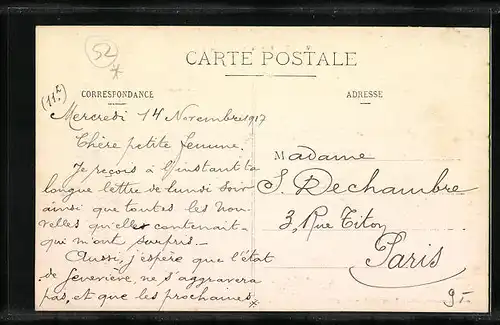 52
*
CARTE POSTALE
(11.2)
CORRESPONDANCE
ADRESSE
Mercredi 14 Novembre 1917
Chère petite femme.
Je reçois à l'instant ta
longue lettre de lundi soir
ainsi que toutes les nou-
velles qu'elle contenait
qui m'ont surpris. —
Aussi, j'espère que l'état
de Geneviève, ne s'aggravera
pas, et que les prochaines *
Madame
S. Dechambre
3 Rue Titon
Paris
9-